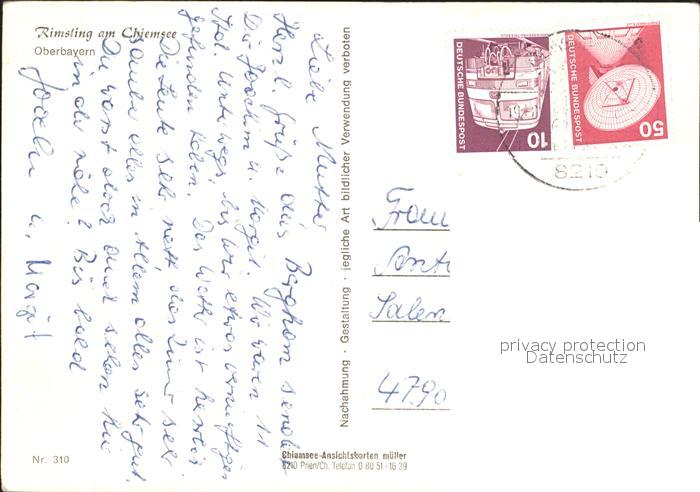 Rimsting am Chiemsee
Oberbayern
Liebe Mutter
Herzl. Grüße aus Bergham sendet
Dir Joachim u. Margit. Wir waren 11
Std. Unterwegs, bis wir etwas vernünftiges
gefunden haben. Das Wetter ist herrlich
Die Leute sehr nett das Zimmer sehr
sauber alles in Allem alles sehr gut.
Du warst doch auch schon hier
in der nähe? Bis bald
u. Margit
Nr. 310
Nachahmung · Gestaltung · jegliche Art bildlicher Verwendung verboten
Chiemsee-Ansichtskarten müller
8210 Prien/Ch. Telefon 0 80 51 - 16 39
DEUTSCHE BUNDESPOST
10
DEUTSCHE BUNDESPOST
50
8210
Frau
Salen
4790
privacy protection
Datenschutz